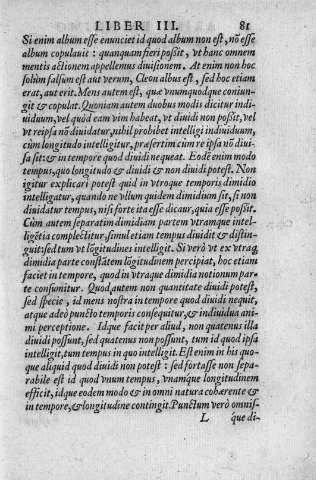 LIBER III. 81
Si enim album esse enunciet id quod album non est, nõ esse
album copulauit: quanquam fieri possit, vt hanc omnem
mentis actionem appellemus diuisionem. At enim non hoc
solùm falsum est aut verum, Cleon albus est, sed hoc etiam
erat, aut erit. Mens autem est, quæ vnumquodque coniun-
git & copulat. Quoniam autem duobus modis dicitur indi-
uiduum, vel quòd eam vim habeat, vt diuidi non possit, vel
vt reipsa nõ diuidatur, nihil prohibet intelligi indiuiduum,
cùm longitudo intelligitur, præsertim cùm re ipsa nõ diui-
sa sit: & in tempore quod diuidi nequeat. Eodē enim modo
tempus, quo longitudo & diuidi & non diuidi potest. Non
igitur explicari potest quid in vtroque temporis dimidio
intelligatur, quando ne vllum quidem dimidium sit, si non
diuidatur tempus, nisi forte ita esse dicatur, quia esse possit.
Cùm autem separatim dimidiam partem vtramque intel-
ligētia complectitur, simul etiam tempus diuidit & distin-
guit: sed tum vt lõgitudines intelligit. Si verò vt ex vtraq;
dimidia parte constātem lõgitudinem percipiat, hoc etiam
faciet in tempore, quod in vtraque dimidia notionum par-
te consumitur. Quod autem non quantitate diuidi potest,
sed specie, id mens nostra in tempore quod diuidi nequit,
atque adeò puncto temporis consequitur, & indiuidua ani-
mi perceptione. Idque facit per aliud, non quatenus illa
diuidi possunt, sed quatenus non possunt, tum id quod ipsa
intelligit, tum tempus in quo intelligit. Est enim in his quo-
que aliquid quod diuidi non potest: sed fortasse non sepa-
rabile est id quod vnum tempus, vnamque longitudinem
efficit, idque eodem modo & in omni natura cohærente &
in tempore, & longitudine contingit. Punctum verò omnis-
L que di-